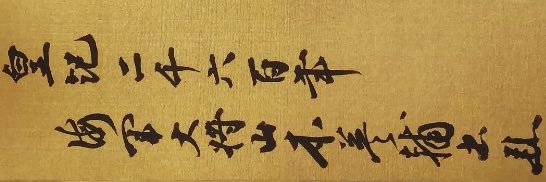 皇紀二千六百年
海軍大将山本英輔